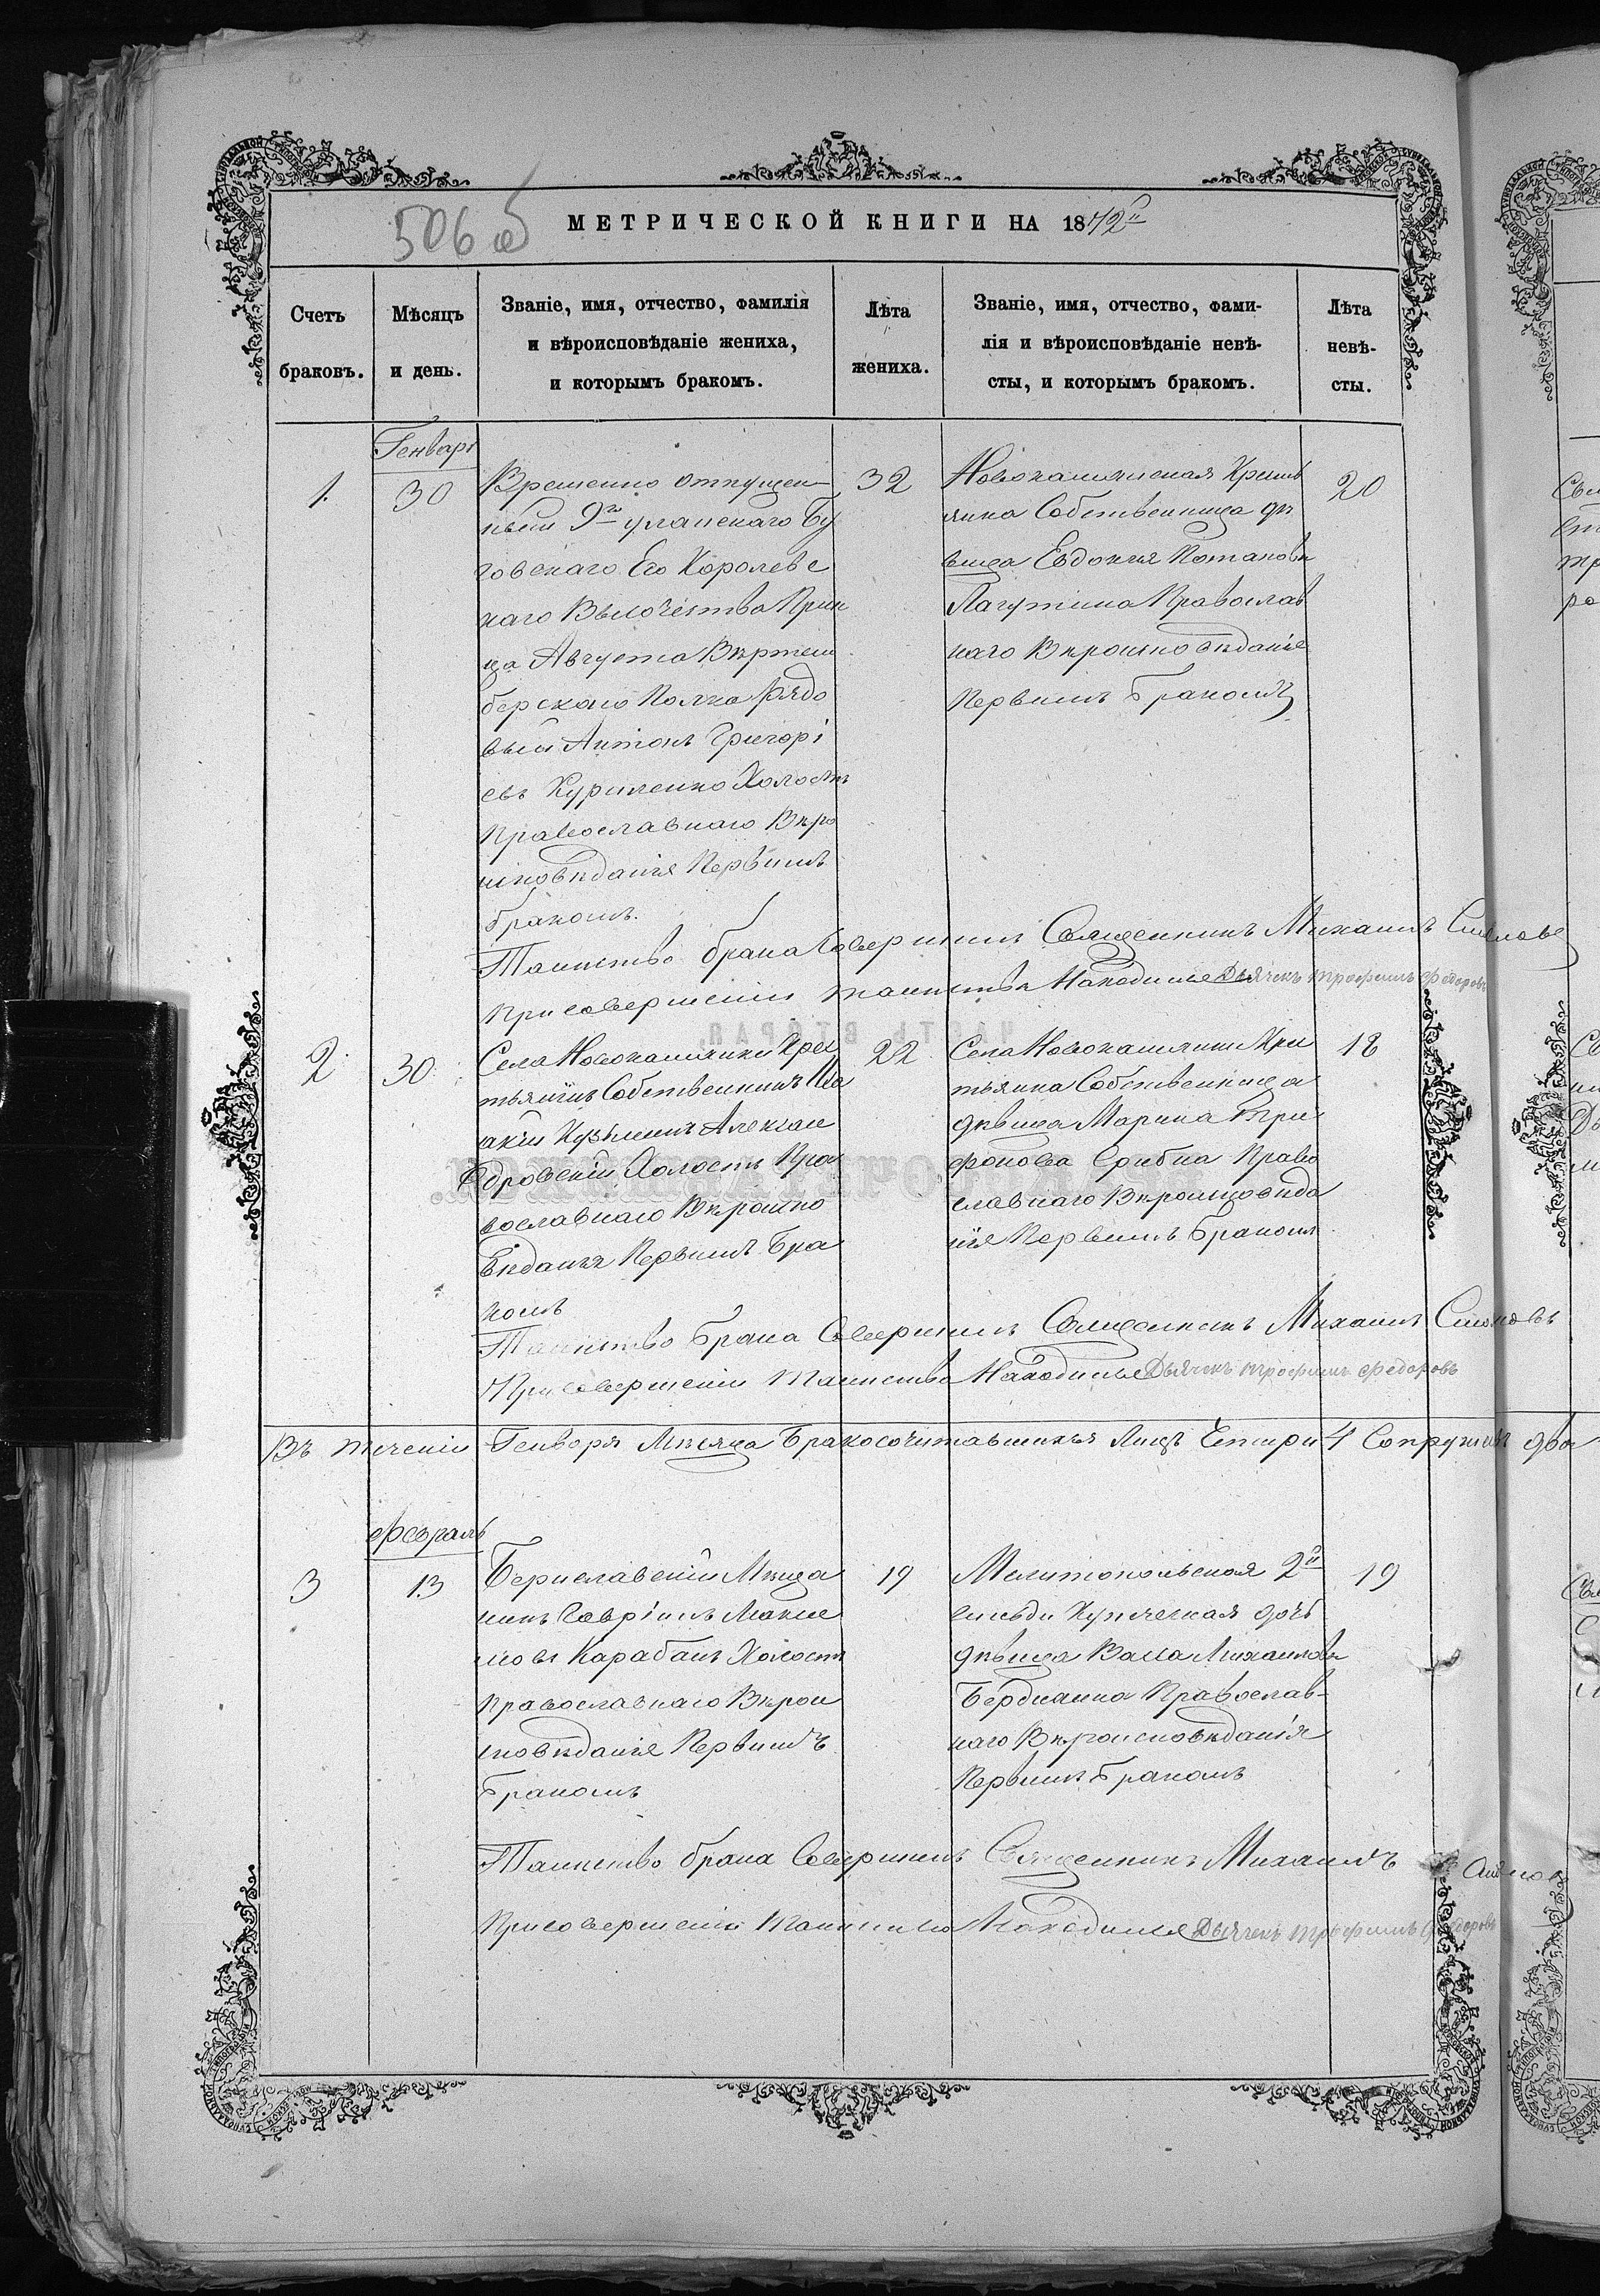 506 об
МЕТРИЧЕСКОЙ КНИГИ НА 1872й
Счетъ браковъ.
Мѣсяцъ и день.
Званіе, имя, отчество, фамилія
и вѣроисповѣданіе жениха,
и которымъ бракомъ.
Лѣта жениха.
Званіе, имя, отчество, фами-
лія и вѣроисповѣданіе невѣ-
сты, и которымъ бракомъ.
Лѣта невѣ-
сты.
Генварь
1.
30
Временно отпущен
ный 9го уланскаго Бу
говскаго Его Королевс
каго Высочества Прин
ца Августа Вѣртем
берскаго Полка Рядо
вый Антонъ Григорі
евъ Куриленко Холостъ
Православнаго Вѣро
исповѣданія Первымъ
бракомъ.
32
Крестъ
янка Собственница дѣ
вица Евдокія Потаповн
Лагутина Православ
наго Вѣроисповѣданіе
Первымъ бракомъ
20
Таинство брака Совершилъ Священникъ Михаилъ
При совершеніи таинства Находился Дьячекъ трофимъ федоровъ
2
30
Села Крес
тьянинъ Собственникъ
Кузьминъ Алексан
дровскій Холостъ Пра
вославнаго Вѣроиспо
вѣданія Первымъ Бра
комъ
22
Села Кре
тьянка Собственница
дѣвица Марина Три
фонова Сребна Право
славнаго Вѣроисповѣда
нія Первымъ бракомъ
18
Таинство брака Совершилъ Священникъ Михаилъ
При совершеніи таинства Находился Дьячекъ трофимъ федоровъ
Въ теченіи Генворя Мѣсяца Бракосочитавшихъя Лицъ Četыри 4 два
февраль
3
13
Бериславскій Мѣща
нинъ Гавріилъ Макси
мовъ Карабанъ Холостъ
Православнаго Вѣрои
сповѣданія Первымъ
бракомъ
19
Мелитопольская 2й
гильди Купеческая дочь
дѣвица Васса Михаиловн
Бердианка Православ-
наго Вѣроисповѣданія
Первымъ бракомъ
19
Таинство брака Совершилъ Священникъ Михаилъ
При совершеніи таинства Находился Дьячекъ трофимъ федоровъ